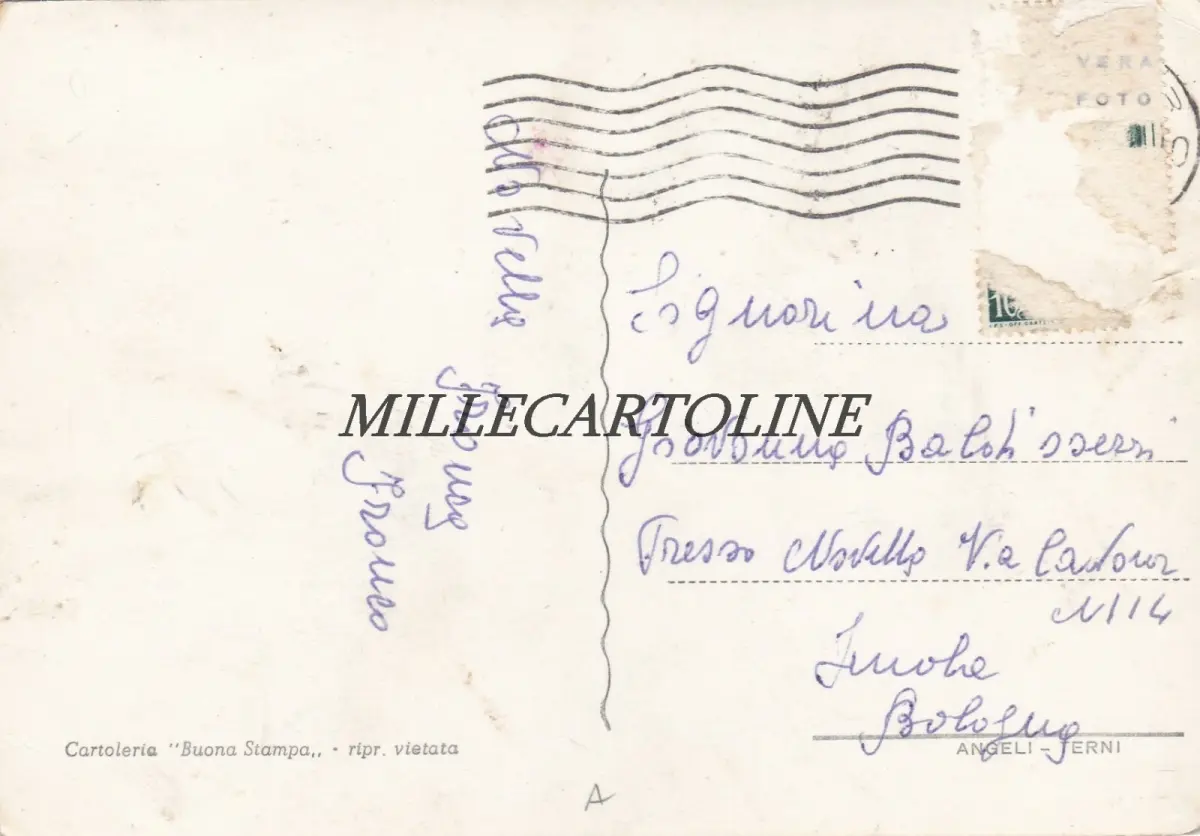 VERA
FOTO
10
Novella
Franca
Franco
MILLECARTOLINE
Signorina
Giovanna
Presso Novella Via Cavour
N 114
Imola
Bologna
Cartoleria "Buona Stampa,, - ripr. vietata
ANGELI - TERNI
A